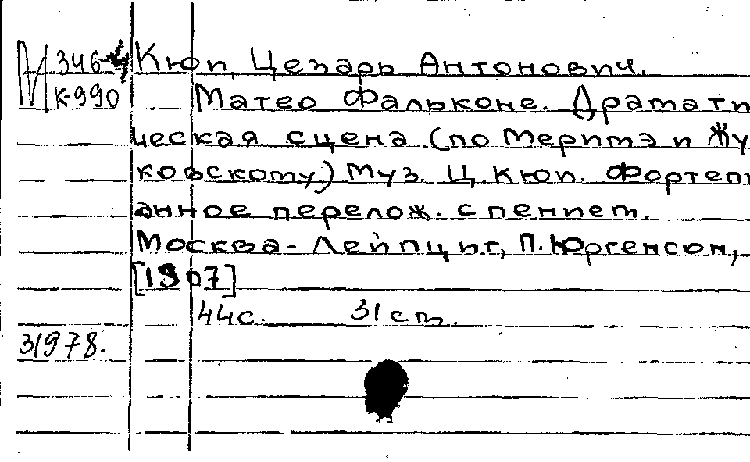 М 346-4 Кюи, Цезарь Антонович.
К-990 Матео Фальконе. Драмати
ческая сцена (по Меримэ и Жу
ковскому) Муз. Ц. Кюи. Фортепи
анное перелож. с пением.
Москва - Лейпциг, П. Юргенсон,
[1907]
44 с. 31 см.
31978.